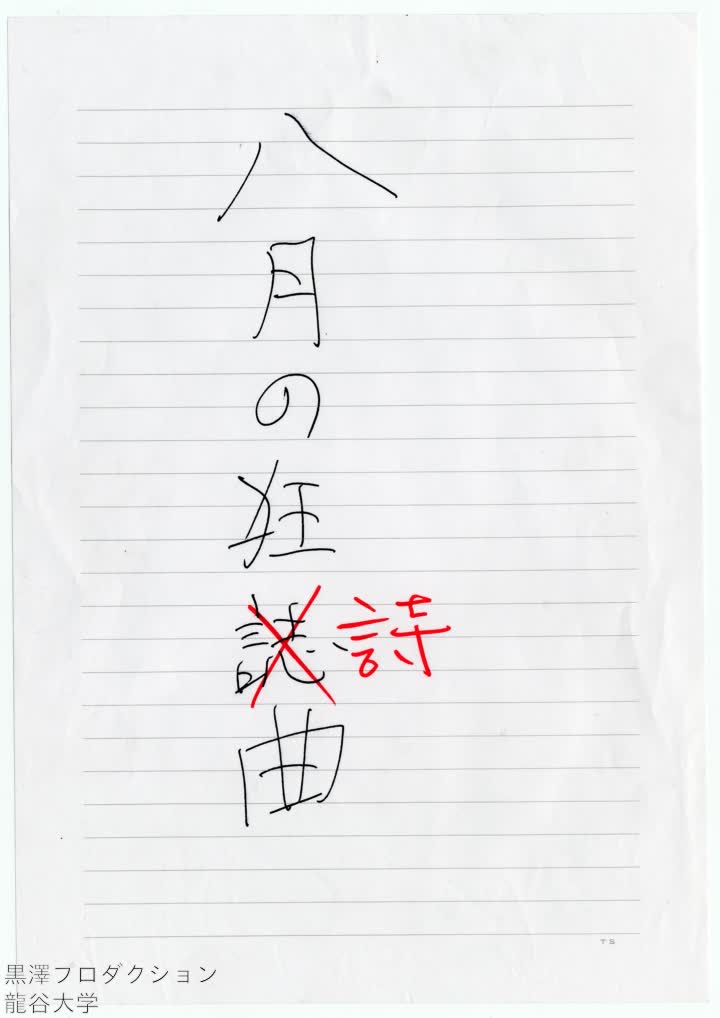 八月の狂誌曲
詩
TS
黒澤プロダクション
龍谷大学